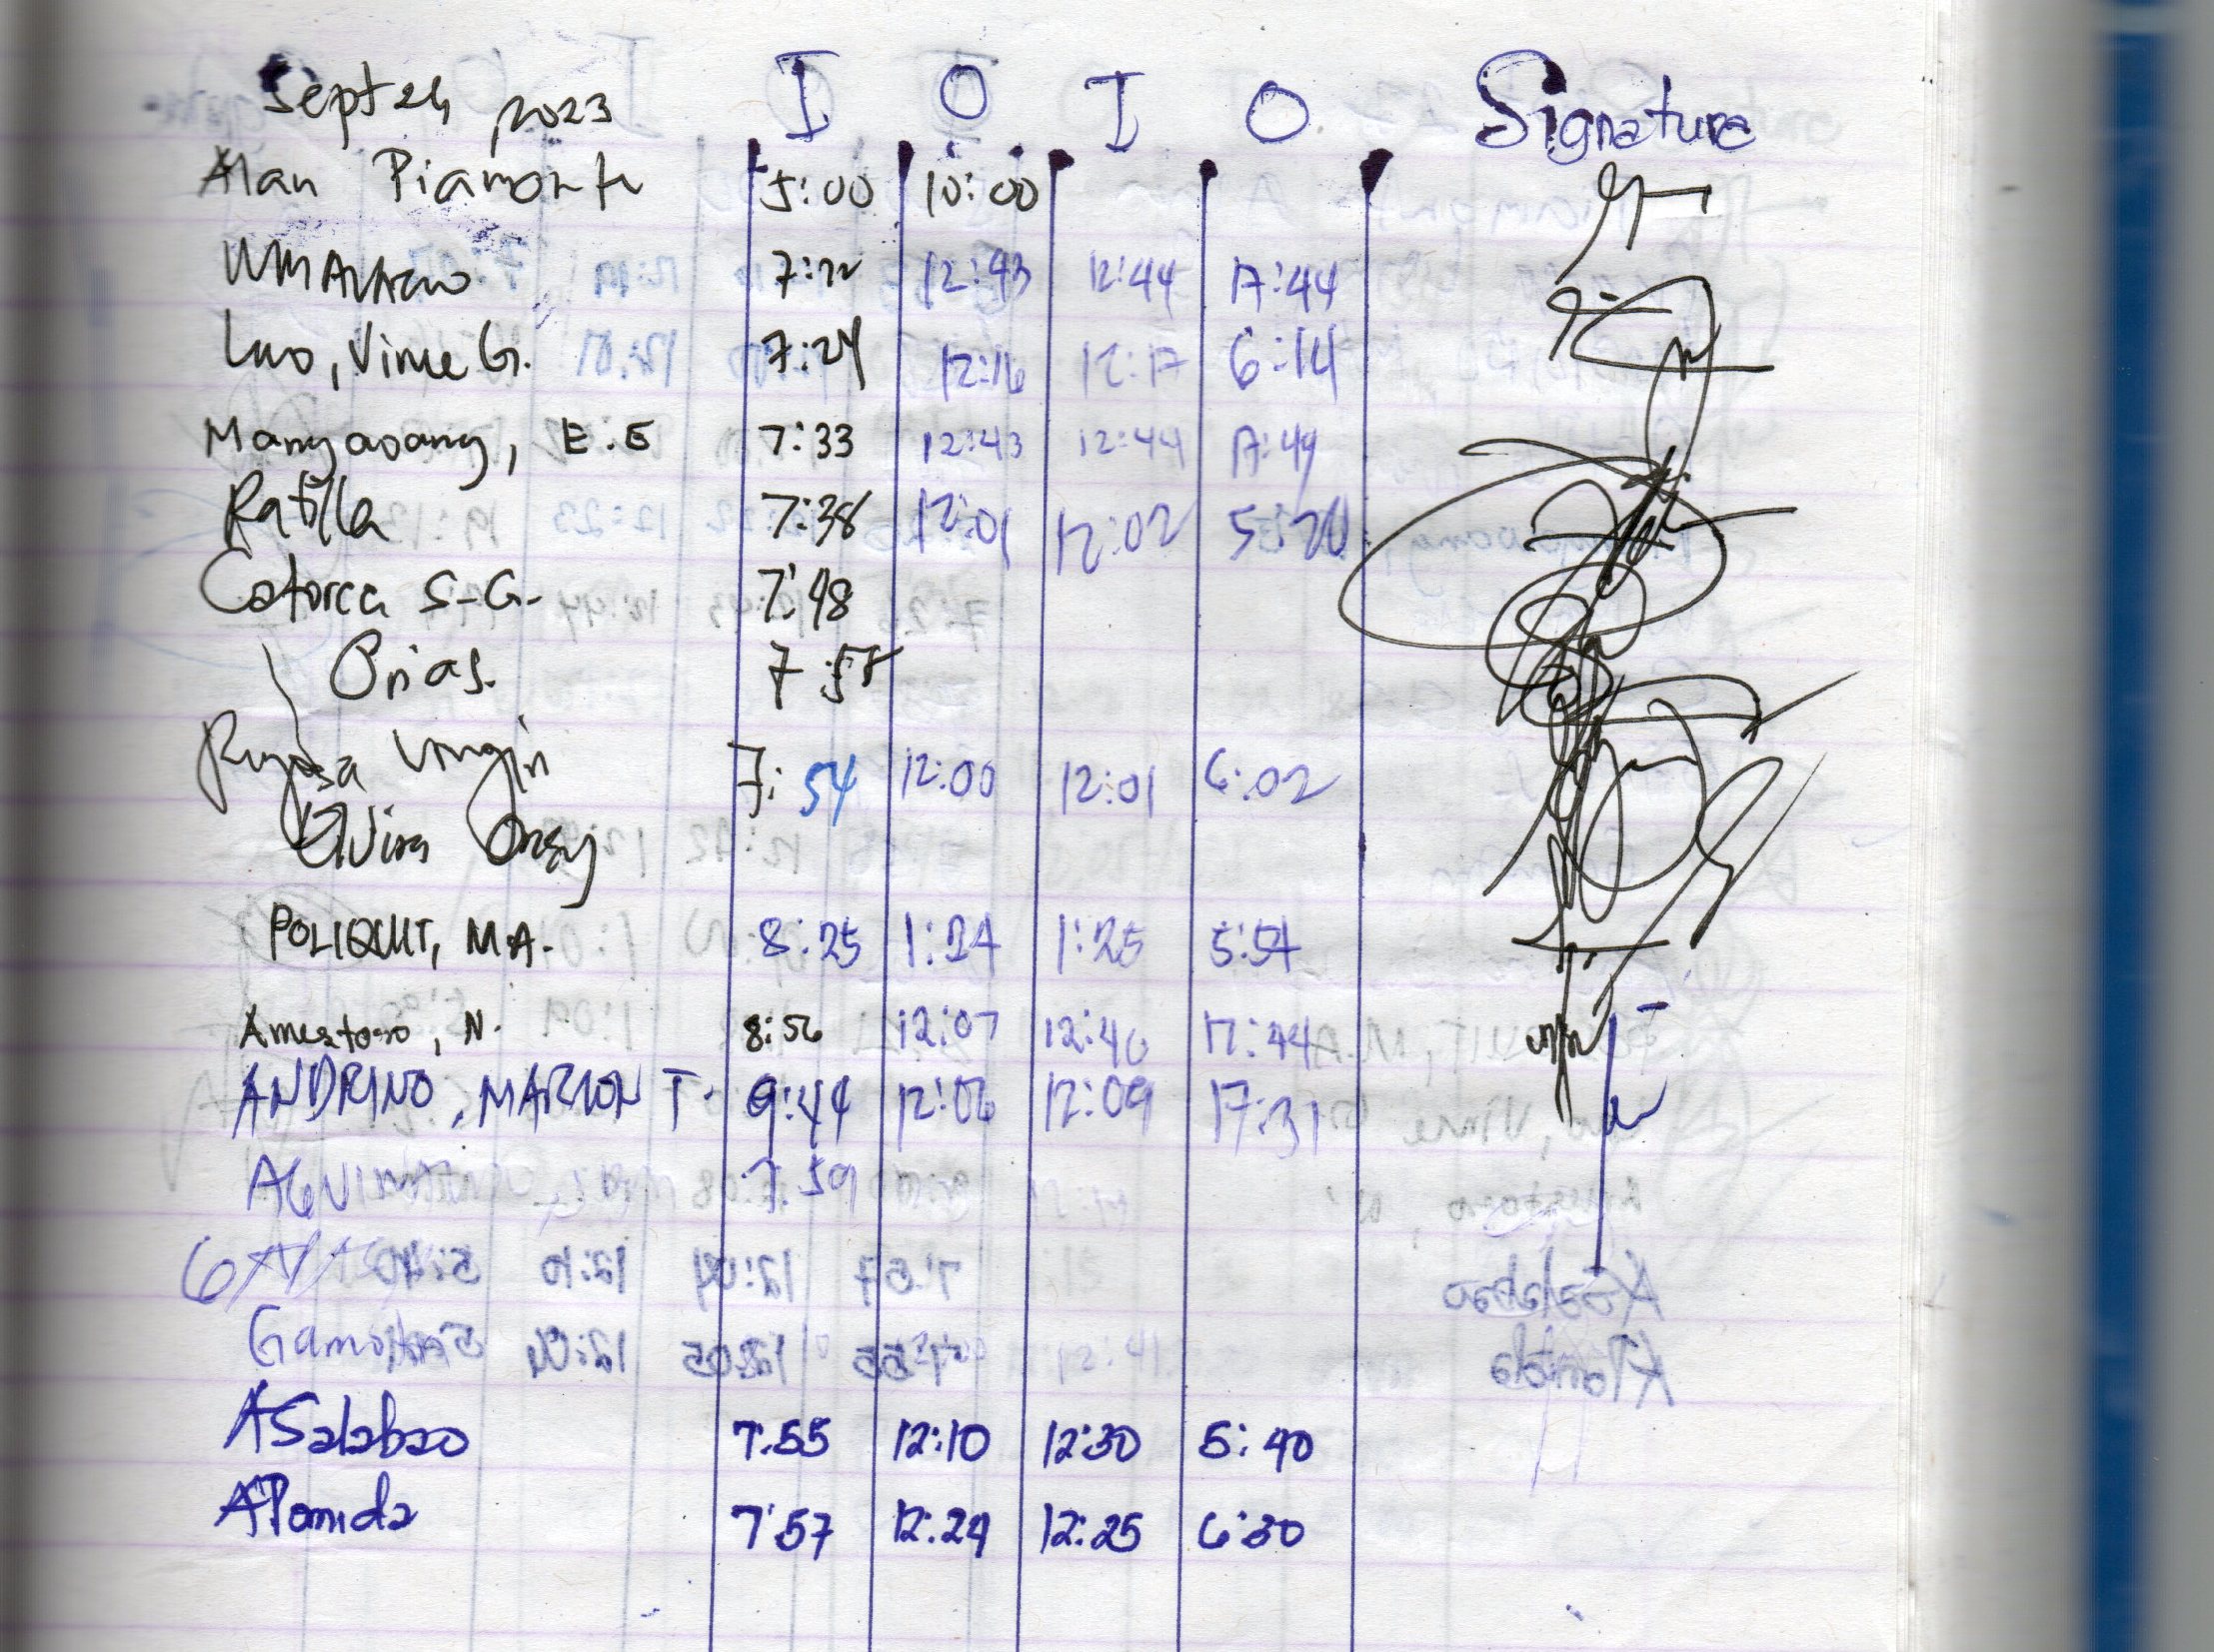 Sept 24, 2023 I O I O Signature
Alan Piamonte 5:00 10:00
7:22 12:43 12:44 17:44
Luo, Vince G. 7:24 12:16 12:17 6:14
Mangaoang, E.E 7:33 12:43 12:44 17:44
Ratilla 7:38 12:01 12:02 5:20
Catorca S-G. 7:48
Orias. 7:58
Virgin 7:54 12:00 12:01 6:02
Elvira
POLIQUIT, M.A. 8:25 1:24 1:25 5:54
Amestoso, N. 8:56 12:07 12:40 17:44
ANDRINO, MARLON T. 9:44 12:06 12:09 17:31
7:59
Gamotin
ASalabao 7:55 12:10 12:30 5:40
APomida 7:57 12:24 12:25 6:30